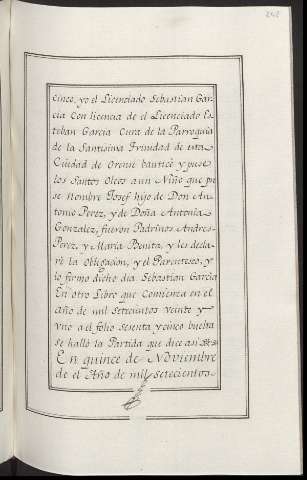 cinco, yo el Licenciado Sebastian Gar-
cia con licencia de el Licenciado Es
teban Garcia Cura de la Parroquia
de la Santisima Trinidad de esta
Ciudad de Orense bauticé y puse
los Santos Oleos a un Niño que pu
se nombre Josef hijo de Don An-
tonio Perez, y de Doña Antonia
Gonzalez, fueron Padrinos Andres
Perez, y Maria Benita, y les decla-
ré la obligacion, y el Parentesco, y
lo firmo dicho dia Sebastian Garcia
En otro Libro que Comienza en el
año de mil setecientos veinte y
uno a el folio sesenta y cinco buelta
se halló la Partida que dice asi
En quince de Noviembre
de el Año de mil setecientos